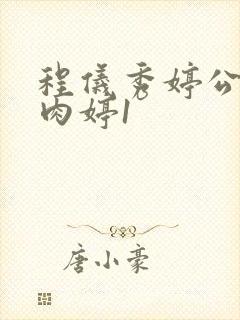 程仪秀婷公
肉婷1
唐小豪